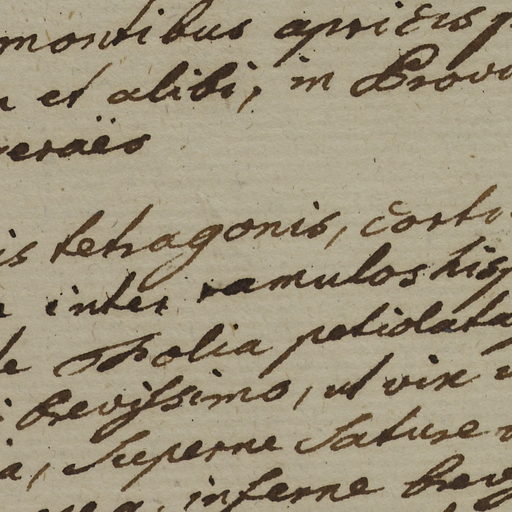 montibus apricis
et alibi, in
eraës
is tetragonis, corti
inter ramulos his
Folia petiolata
brevissimo, ut vix
a, superne sature
inferne brev